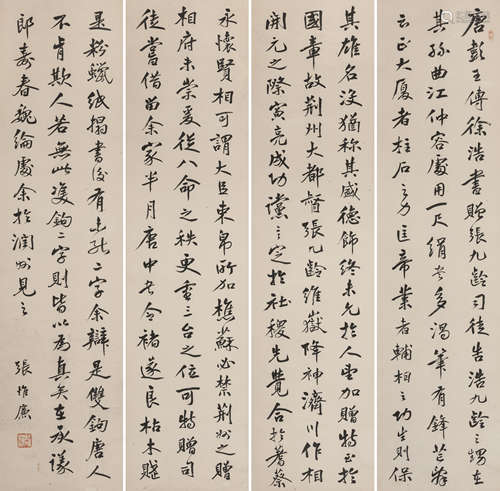 唐彭王傅徐浩書贈張九齡司徒告浩九齡之甥在
其孫曲江仲容處用一尺絹書多渴筆有鋒芒辭
云正大廈者柱石之力匡帝業者輔相之功生則保
其雄名沒猶稱其盛德飾終未允於人望加贈特出於
國章故荊州大都督張九齡維嶽降神濟川作相
開元之際寅亮成功讜言定於社稷先覺合於蓍蔡
永懷賢相可謂大臣束帛所加樵蘇必禁荊州之贈
相府未崇爰從八命之秩更重三台之位可特贈司
徒嘗借留余家半月唐中書令褚遂良枯木賦
是粉蠟紙搨書後有未能二字余辯是雙鉤唐人
不肯欺人若無此雙鉤二字則皆以為真矣在承議
郎壽春魏綸處余於潤州見之 張